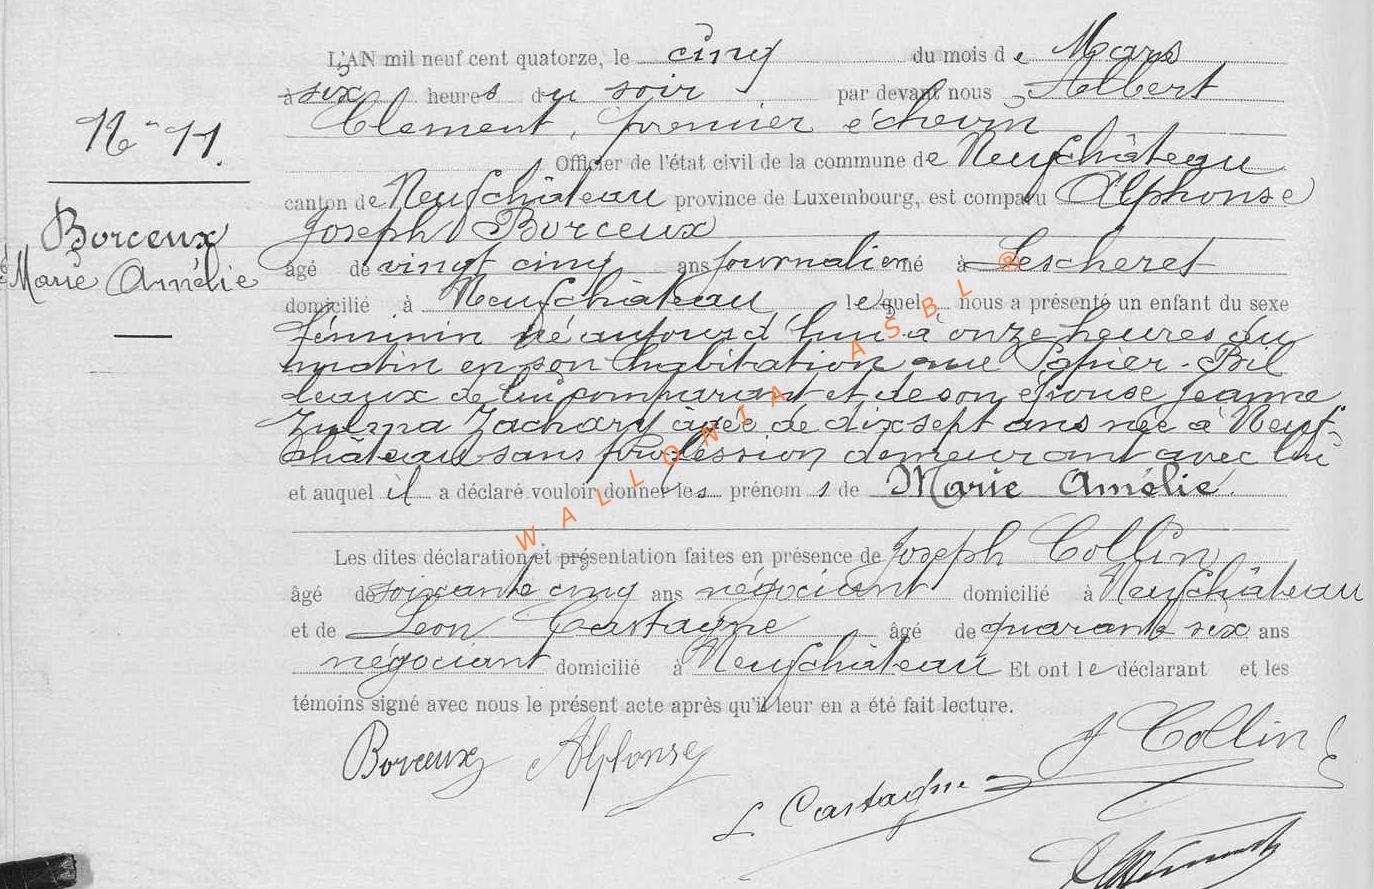 N° 11.
Borceux
Marie Amélie
L'AN mil neuf cent quatorze, le cinq du mois de Mars
à six heures du soir par devant nous Albert
Clement, premier échevin
Officier de l'état civil de la commune de Neufchâteau
canton de Neufchâteau province de Luxembourg, est comparu Alphonse
Joseph Borceux
âgé de vingt cinq ans journalier né à Lescheret
domicilié à Neufchâteau lequel nous a présenté un enfant du sexe
féminin né aujourd'hui à onze heures du
matin en son habitation rue Papier-Bil
leaux de lui comparant et de son épouse Jeanne
Zulma Zachary âgée de dix sept ans née à Neuf-
château sans profession demeurant avec lui
et auquel il a déclaré vouloir donner les prénoms de Marie Amélie.
Les dites déclaration et présentation faites en présence de Joseph Collin
âgé de soixante cinq ans négociant domicilié à Neufchâteau
et de Léon Castagne âgé de quarante six ans
négociant domicilié à Neufchâteau Et ont le déclarant et les
témoins signé avec nous le présent acte après qu'il leur en a été fait lecture.
Borceux Alphonse
J Collin
L Castagne
WALLONIA ASBL ®